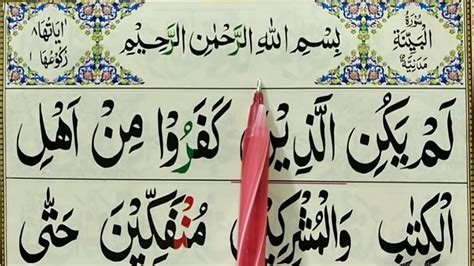 سُورَةُ الْبَيِّنَةِ مَدَنِيَّةٌ
بِسْمِ اللهِ الرَّحْمٰنِ الرَّحِيْمِ
اٰيَاتُهَا ٨ رُكُوْعُهَا ١
لَمْ يَكُنِ الَّذِيْنَ كَفَرُوْا مِنْ اَهْلِ
الْكِتٰبِ وَالْمُشْرِكِيْنَ مُنْفَكِّيْنَ حَتّٰى